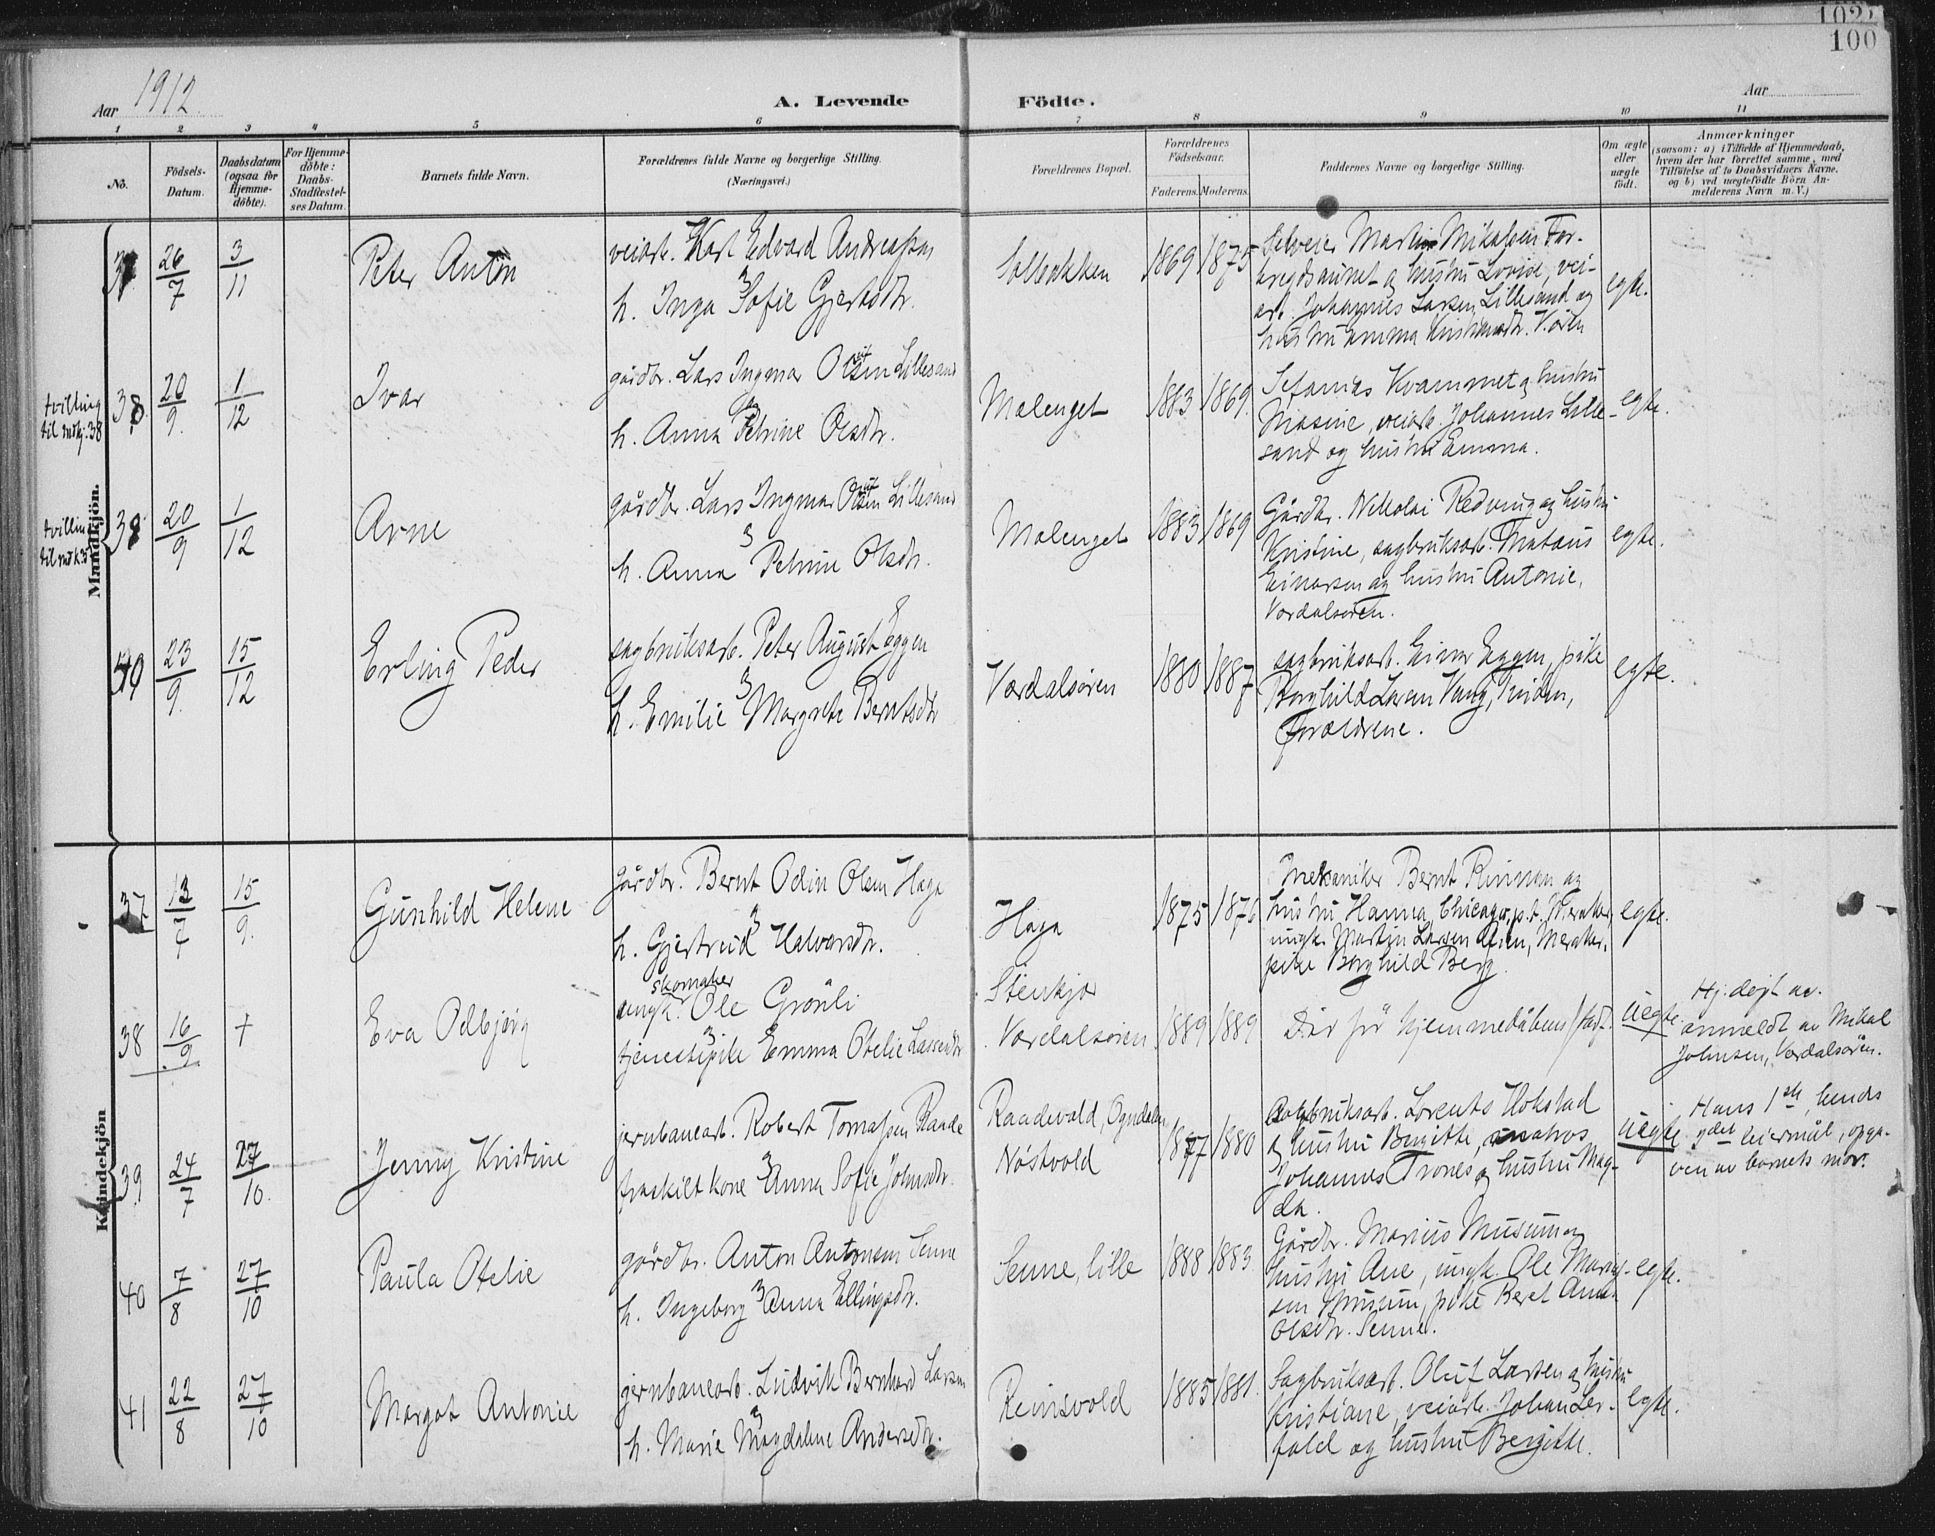 102
100
Aar 1912.
A. Levende Födte.
Aar
1 2 3 4 5 6 7 8 9 10 11
No.
Födsels-Datum.
Daabsdatum (ogsaa for Hjemme-döbte).
For Hjemme-döbte: Daabs-Stadfæstel-ses Datum.
Barnets fulde Navn.
Forældrenes fulde Navne og borgerlige Stilling. (Næringsvei.)
Forældrenes Bopæl.
Forældrenes Födselsaar.
Faderens. Moderens.
Faddernes Navne og borgerlige Stilling.
Om ægte eller uægte födt.
Anmærkninger
(saasom: a) i Tilfælde af Hjemmedaab, hvem der har forrettet samme, med Tilföielse af to Daabsvidners Navne, og b) ved uægtefödte Börn An-melderens Navn m. V.)
Mandkjön.
26/7 3/11 Peter Anton
veiarb. Karl Edvard Andreassen
h. Inga Sofie Gjertsdtr.
Solbakken 1869 1875
Selveier Martin Mikalsen For-
bregdsaunet og hustru Lovise, vei-
arb. Johannes Larsen Lillesand og
hustru Emma
egte.
tvilling til mdkj. 38
20/9. 1/12 Ivar
gårdbr. Lars Ingmar Olsen Lillesand
h. Anna Petrine Olsdtr.
Molenget 1883 1869.
Sefanias Kvammet og hustru
Masine, veiarb. Johannes Lille-
sand og hustru Emma.
egte.
tvilling til mdk.
38 20/9 1/12 Arne
gårdbr. Lars Ingmar Olsen Lillesand
h. Anna Petrine Olsdtr.
Molenget 1883 1869
Gårdbr. Nikolai Redving og hustru
Kristine, sagbruksarb. Mataus
Einarsen og hustru Antonie,
Værdalsøren.
egte.
40 23/9. 15/12 Erling Peder
sagbruksarb. Peter August Eggen
h. Emilie Margrete Berntsdtr
Værdalsøren 1880 1887
sagbruksarb. Einar Eggen, pike
Borghild Larsen Vang, Inderø,
forældrene.
egte.
Kvindekjön
37 13/7 15/9. Gunhild Helene
gårdbr. Bernt Odin Olsen Haga
h. Gjertrud Halvorsdtr.
Haga 1875 1876
Mekaniker Bernt Rinnan og
hustru Hanna, Chicago, p.t. Meraker,
ungk. Martin Larsen Lien, Meraker,
pike Borghild Berg.
egte.
38 16/9 + Eva Odbjørg
skomaker
ungk. Ole Grönli
tjenestepike Emma Otelie Larsdtr
Stenkjær
Værdalsøren 1889 1889
Dør før hjemmedåbens stadf.
uegte.
Hj. døpt av.
anmeldt av Mikal
Johnsen, Værdalsøren.
39 24/7 27/10. Jenny Kristine
jernbanearb. Robert Tomassen Raade
fraskilt kone Anna Sofie Johnsdtr.
Raadevold, Ogndalen
Nöstvold 1877 1880
Sagbruksarb. Lorents Hokstad
og hustru Birgitte, matros
Johannes Trones og hustru Mag-
da.
uegte
Hans 1ste, hendes
2det leiermål, opgi-
ven av barnets mor.
40 7/8 27/10 Paula Otelie
gårdbr. Anton Antonsen Senne
h. Ingeborg Anna Ellingsdtr.
Senne, lille 1888 1883
Gårdbr. Marius Musum og
hustru Ane, ungk. Ole Marius-
sen Musum, pike Beret Anna
Olsdtr. Senne.
egte.
41 22/8 27/10 Margot Antonie
jernbanearb. Ludvik Bernhard Larsen
h. Marie Magdalene Andersdtr.
Reinsvold 1885 1881.
Sagbruksarb. Oluf Larsen og hustru
Kristiane, veiarb. Johan Ler-
fald og hustru Bergitte.
egte.